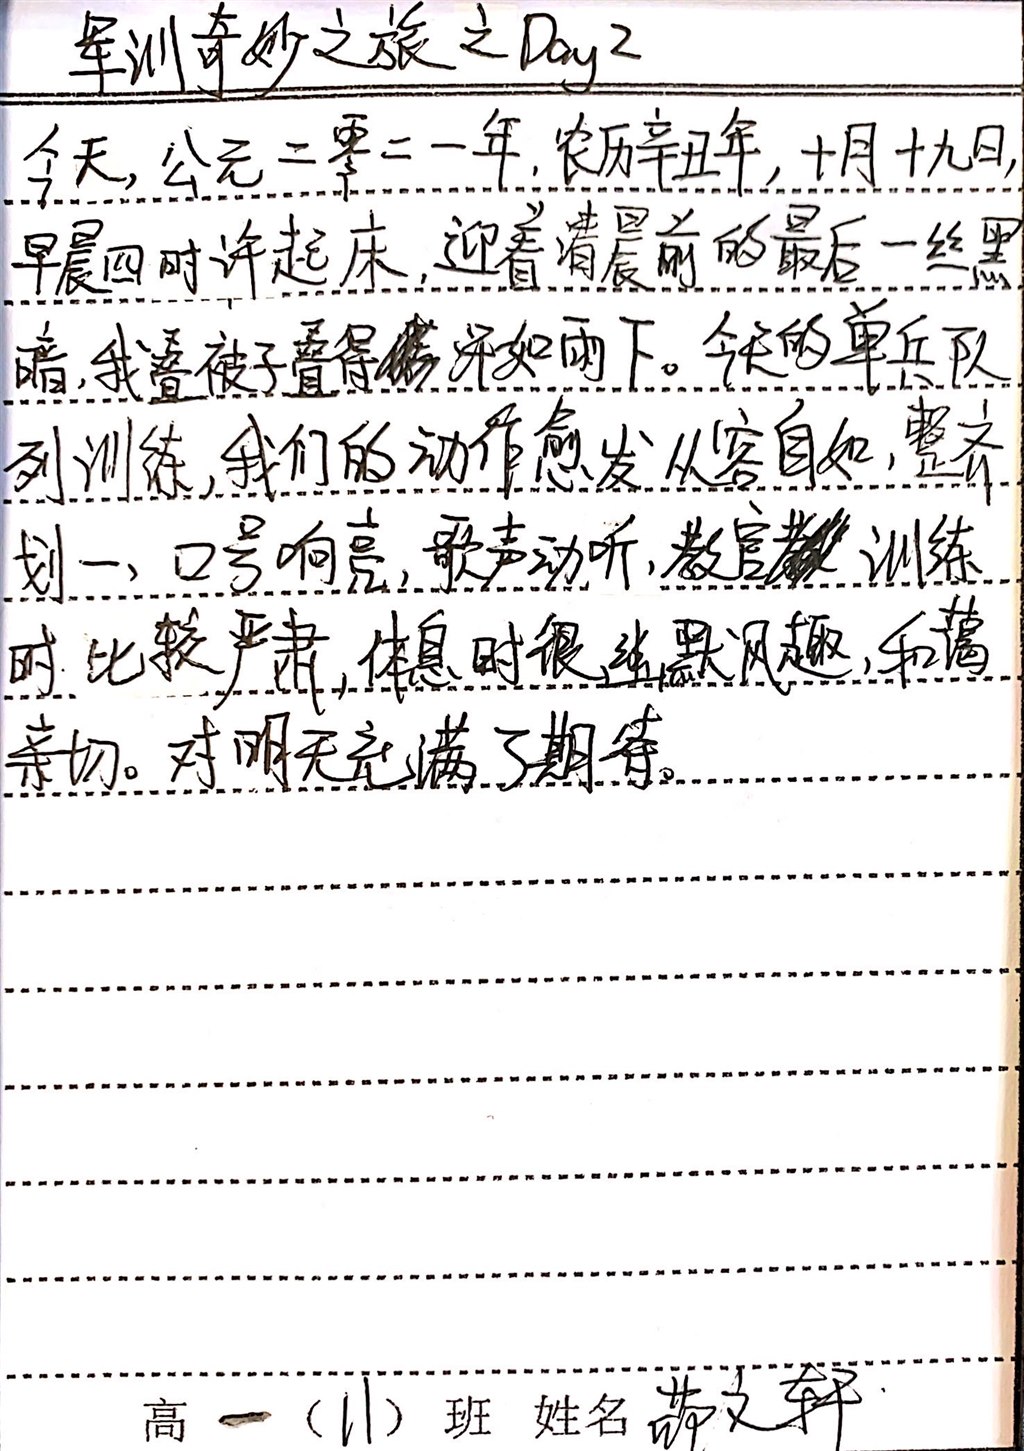 军训奇妙之旅之Day2
今天,公元二零二一年,农历辛丑年,十月十九日,
早晨四时许起床,迎着清晨前的最后一丝黑
暗,我叠被子叠得汗如雨下。今天的单兵队
列训练,我们的动作愈发从容自如,整齐
划一,口号响亮,歌声动听,教官训练
时比较严肃,休息时很幽默风趣,和蔼
亲切。对明天充满了期待。
高一(11)班 姓名 薛文轩